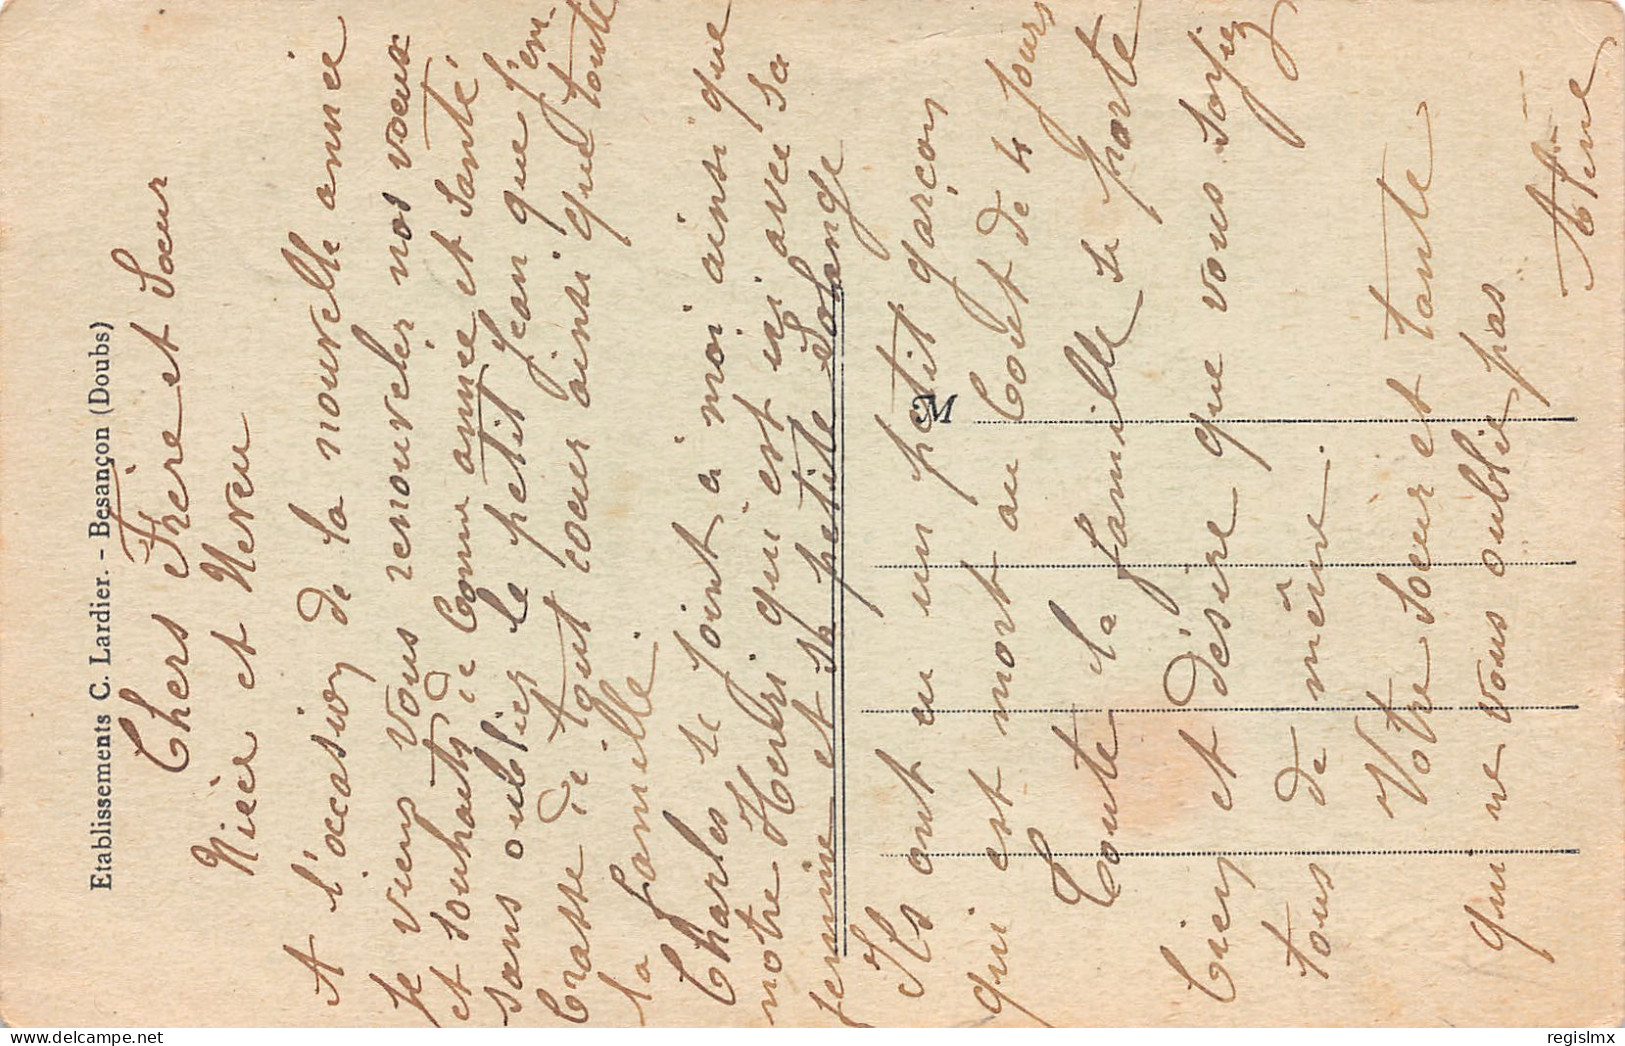 Etablissements C. Lardier. - Besançon (Doubs)
Chers Frère et Sœur
Nièce et Neveu
A l'occasion de la nouvelle année
je viens vous renouveler nos vœux
et souhaits de bonne année et santé
sans oublier le petit Jean que j'em-
brasse de tout cœur ainsi que toute
la famille.
Charles se joint a moi ainsi que
notre Henri qui est ici avec sa
femme et sa petite Solange
Ils ont eu un petit garçon
qui est mort au bout de 4 jours
Toute la famille se porte
bien et désire que vous soyez
tous de même.
Votre sœur et tante
qui ne vous oublie pas
M
regislmx